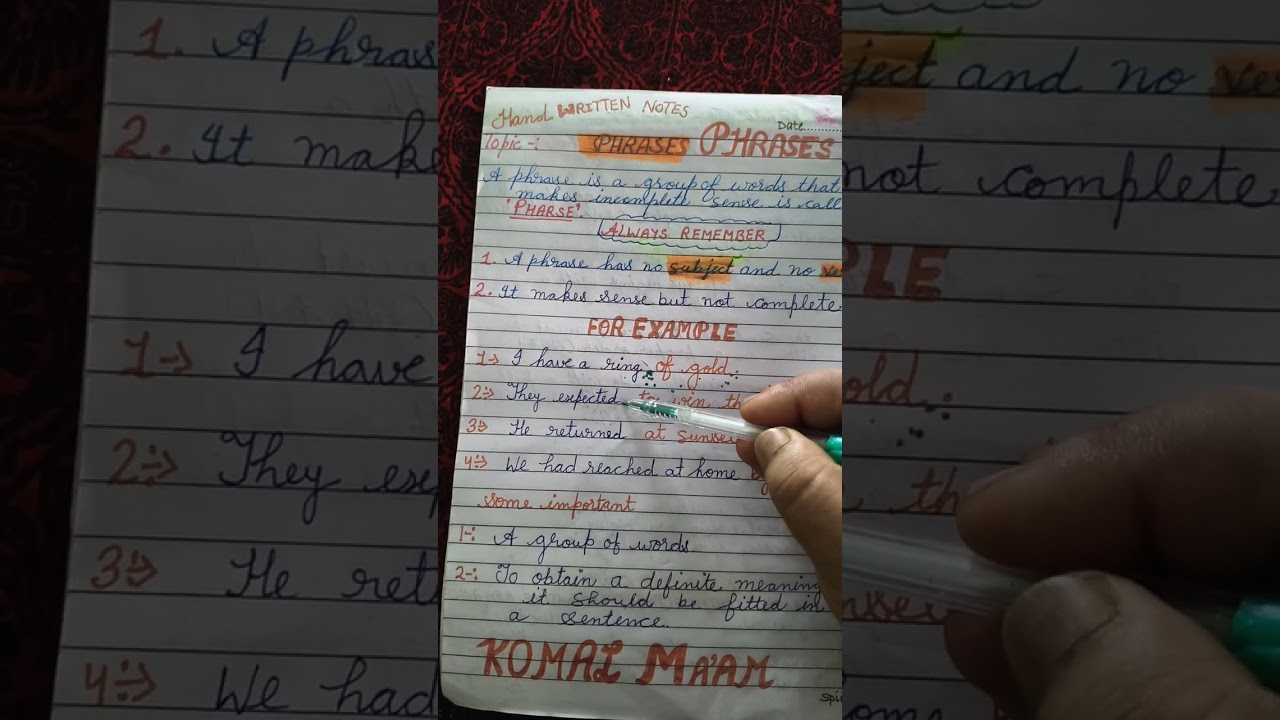 Hand WRITTEN NOTES
Date..........
Topic -: PHRASES PHRASES
A phrase is a group of words that
makes incomplete sense is call
"PHARSE"
ALWAYS REMEMBER
1. A phrase has no subject and no ve
2. It makes sense but not complete
FOR EXAMPLE
1-> I have a ring of gold.
2-> They expected to win th
3-> He returned at sunset
4-> We had reached at home
some important
1-: A group of words.
2-: To obtain a definite meaning
it should be fitted in
a sentence.
KOMAL MA'AM
Spi
1. A phras
2. It make
1-> I have
2-> They exp
3-> He ret
4-> We had
ject and no ve
not complete
PLE
old.
th
nset
ome